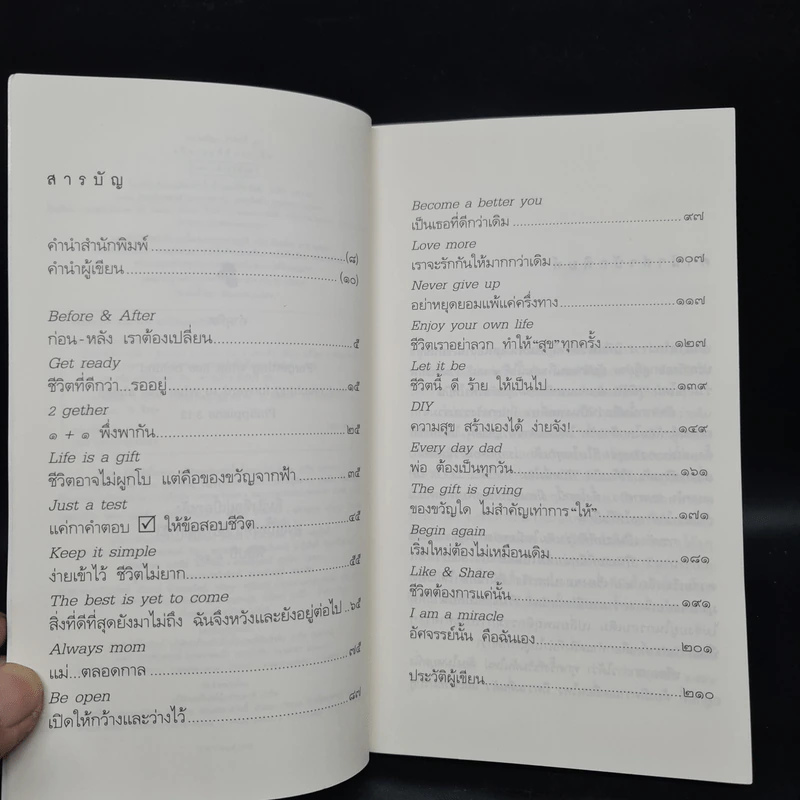 สารบัญ
คำนำสำนักพิมพ์ (๘)
คำนำผู้เขียน (๑๐)
Before & After
ก่อน-หลัง เราต้องเปลี่ยน ๕
Get ready
ชีวิตที่ดีกว่า...รออยู่ ๑๕
2 gether
๑ + ๑ พึ่งพากัน ๒๕
Life is a gift
ชีวิตอาจไม่ผูกโบ แต่คือของขวัญจากฟ้า ๓๕
Just a test
แค่กาคำตอบ ☑ ให้ข้อสอบชีวิต ๔๕
Keep it simple
ง่ายเข้าไว้ ชีวิตไม่ยาก ๕๕
The best is yet to come
สิ่งที่ดีที่สุดยังมาไม่ถึง ฉันจึงหวังและยังอยู่ต่อไป ๖๕
Always mom
แม่...ตลอดกาล ๗๕
Be open
เปิดให้กว้างและว่างไว้ ๘๗
Become a better you
เป็นเธอที่ดีกว่าเดิม ๙๗
Love more
เราจะรักกันให้มากกว่าเดิม ๑๐๗
Never give up
อย่าหยุดยอมแพ้แค่ครึ่งทาง ๑๑๗
Enjoy your own life
ชีวิตเราอย่าลวก ทำให้“สุข”ทุกครั้ง ๑๒๗
Let it be
ชีวิตนี้ ดี ร้าย ให้เป็นไป ๑๓๙
DIY
ความสุข สร้างเองได้ ง่ายจัง! ๑๔๙
Every day dad
พ่อ ต้องเป็นทุกวัน ๑๖๑
The gift is giving
ของขวัญใด ไม่สำคัญเท่าการ“ให้” ๑๗๑
Begin again
เริ่มใหม่ต้องไม่เหมือนเดิม ๑๘๑
Like & Share
ชีวิตต้องการแค่นั้น ๑๙๑
I am a miracle
อัศจรรย์นั้น คือฉันเอง ๒๐๑
ประวัติผู้เขียน ๒๑๐